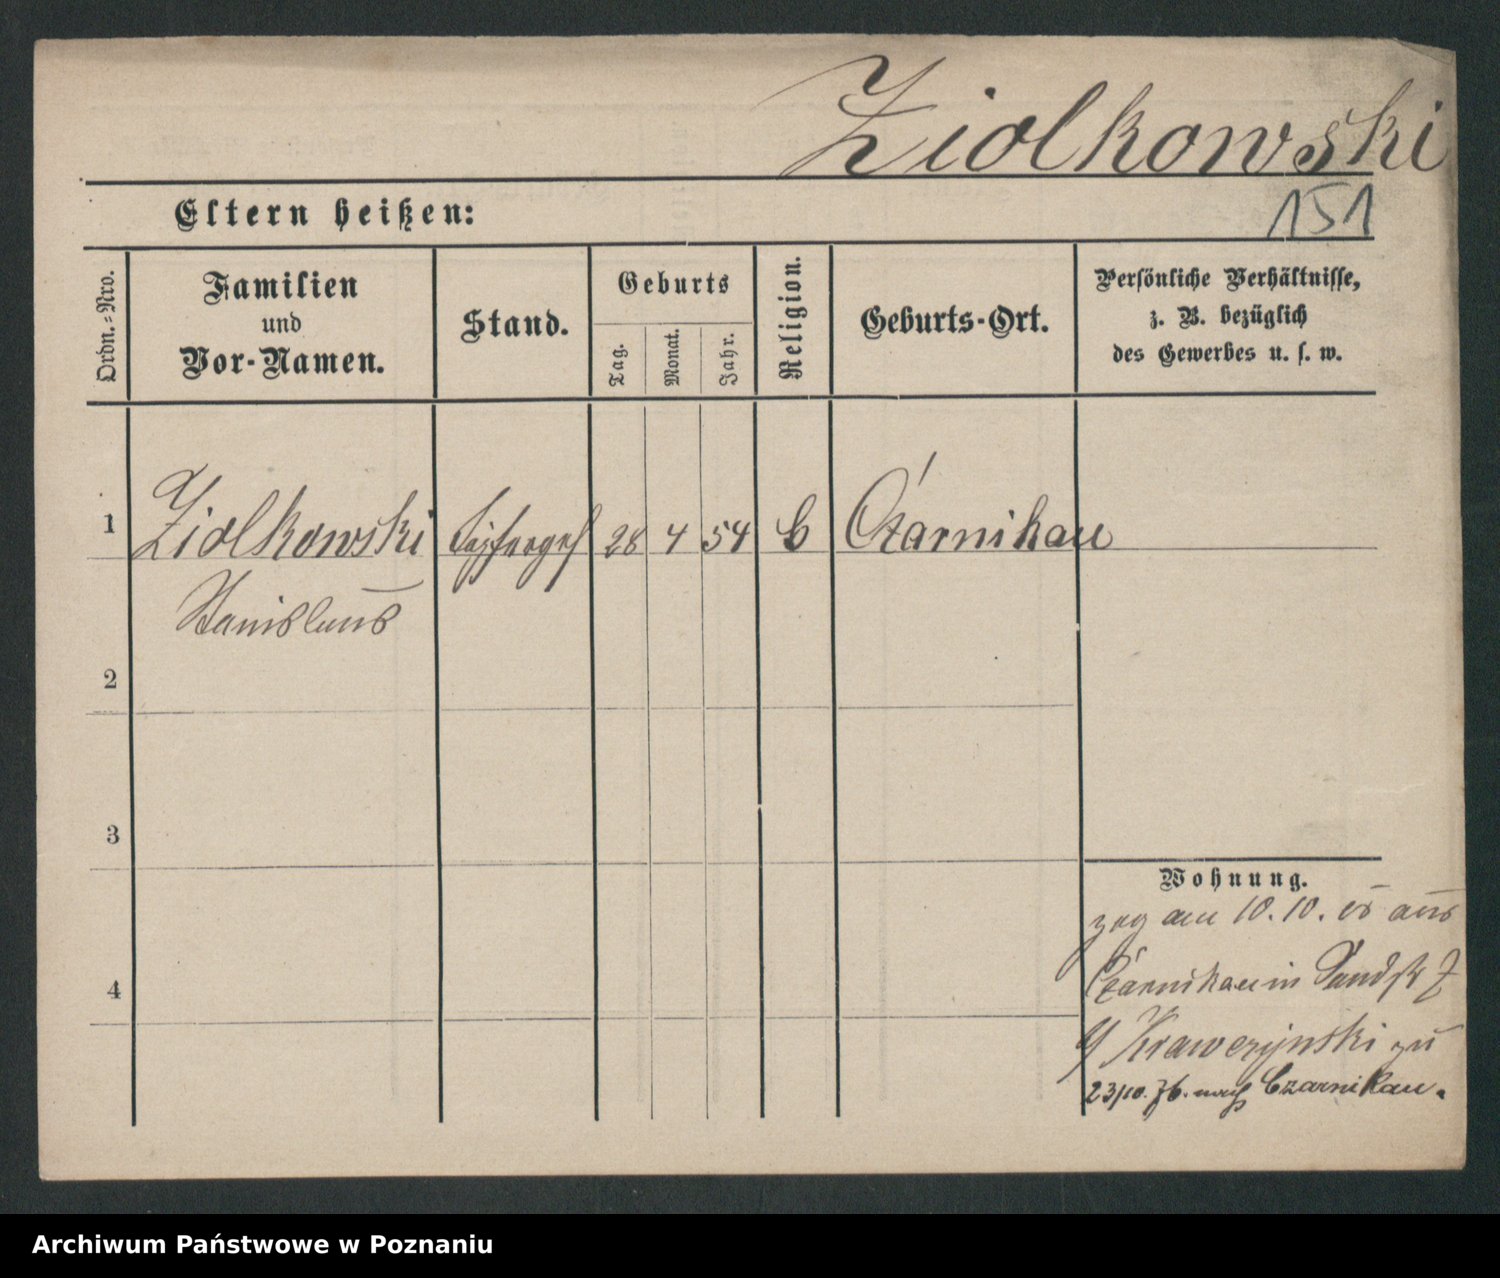 Ziolkowski
Eltern heißen:
151
Ordn.-Nro.
Familien
und
Vor-Namen.
Stand.
Geburts
Tag.
Monat.
Jahr.
Religion.
Geburts-Ort.
Persönliche Verhältnisse,
z. B. bezüglich
des Gewerbes u. s. w.
1 Ziolkowski 28 4 54 C Czarnikau
Stanislaus
2
3
4
Wohnung.
zog am 10. 10. aus
Czarnikau in Sandstr 7
Krawczynski zu
23/10. 76. nach Czarnikau.
Archiwum Państwowe w Poznaniu